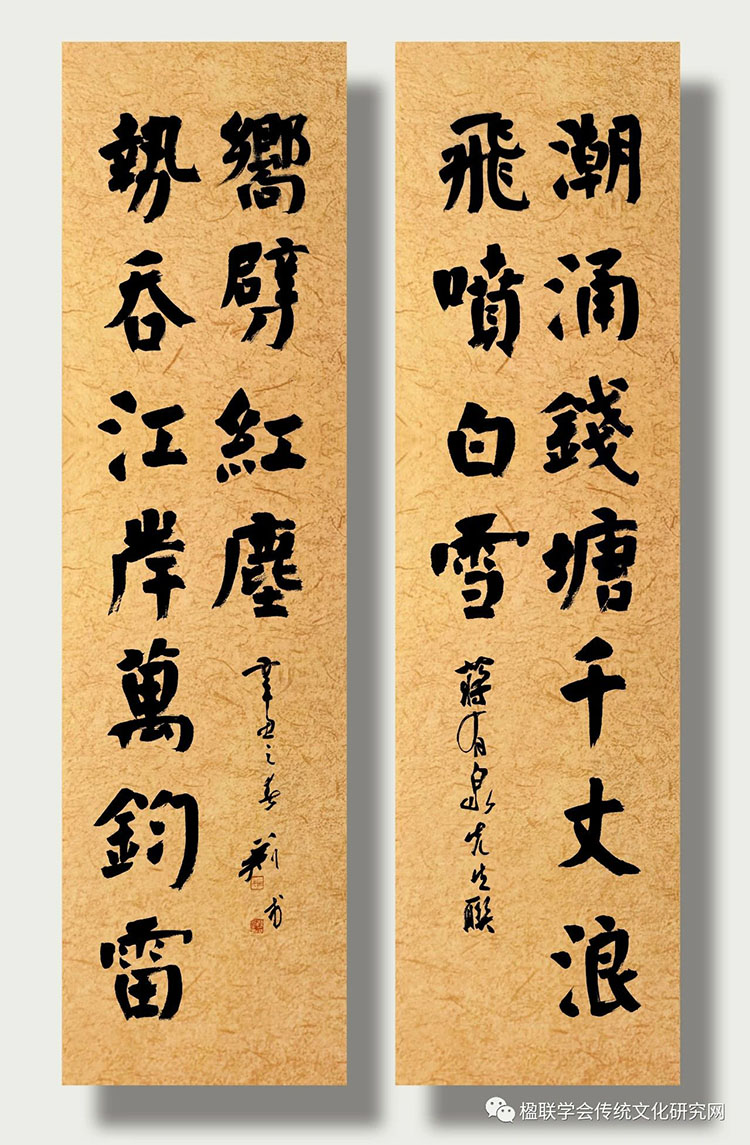 潮涌錢塘千丈浪
飛噴白雪
蔣有泉先生聯
勢吞江岸萬鈞雷
嚮劈紅塵
辛丑之春
楹联学会传统文化研究网